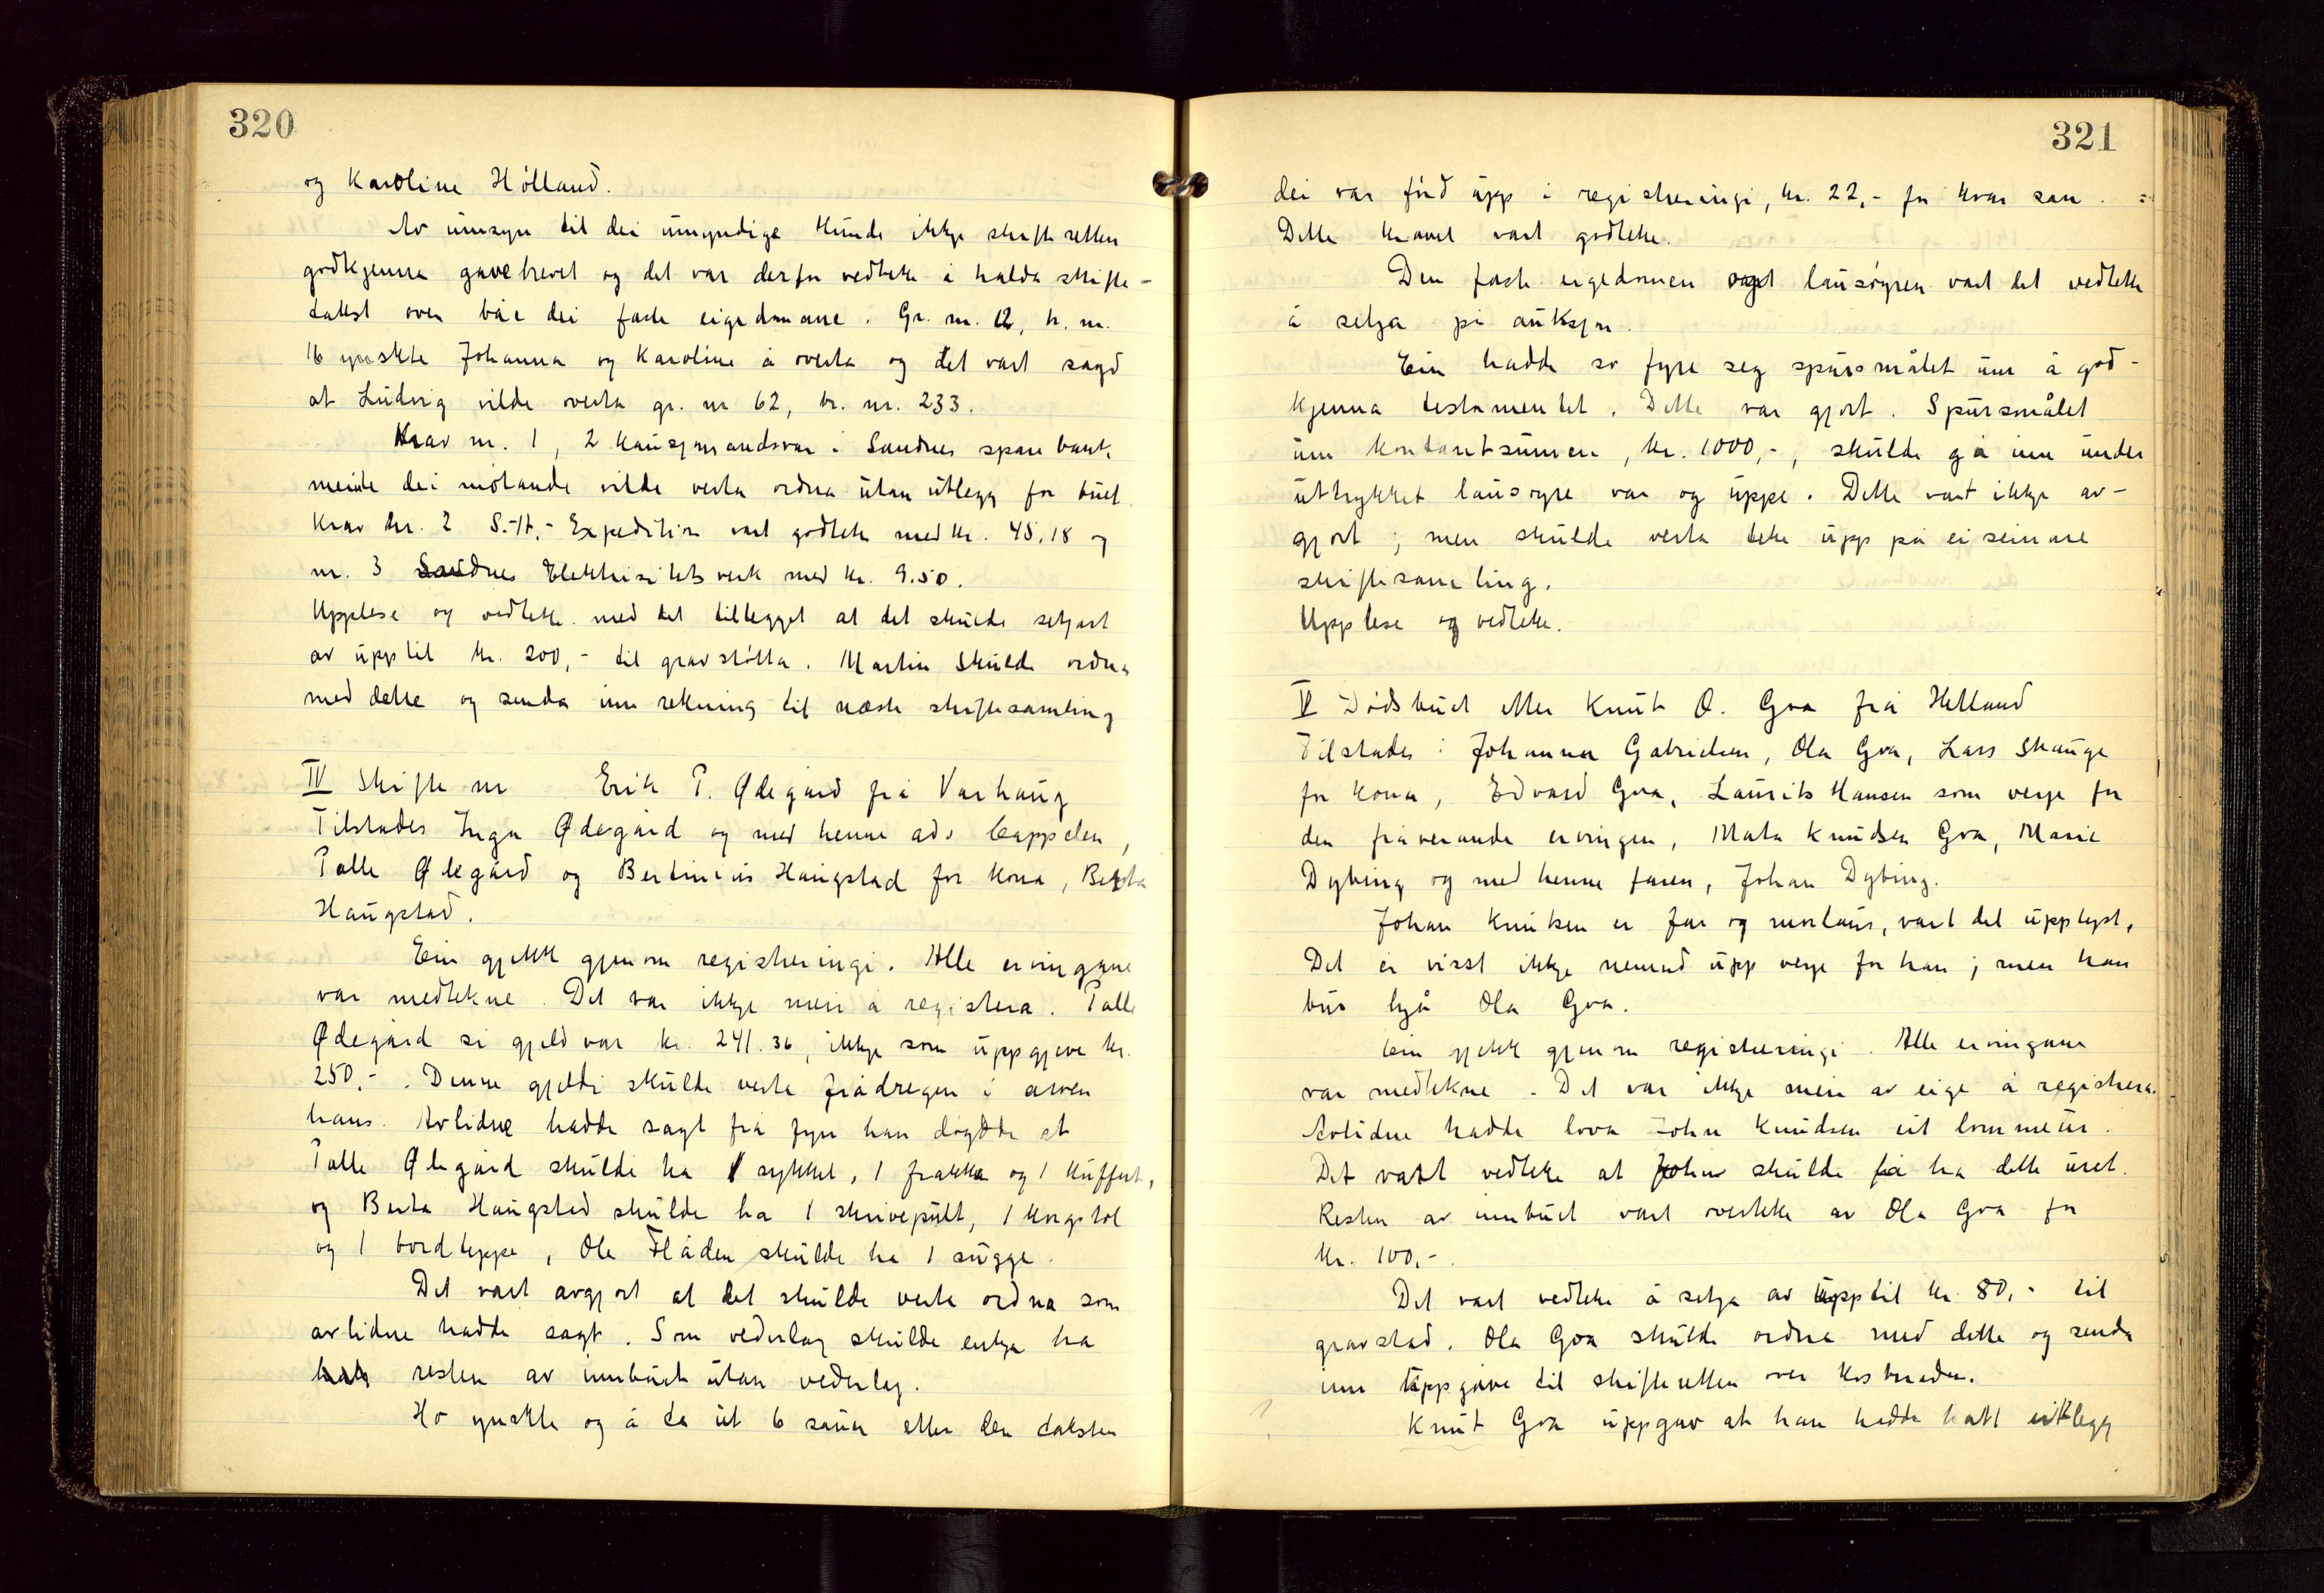 320
og Karoline Hólland.
Av umsyn til dei umyndige kunde ikkje skifteretten
godkjenna gavebrevet og det var derfor vedteke å halda skifte-
takst over båe dei faste eigedomane. Gr. nr. 12, br. nr.
16 ynskte Johanna og Karoline å overta og det vart sagd
at Ludvig vilde overta gr. nr 62, br. nr. 233.
Krav nr. 1, 2 kausjonsandsvar i Sandnes sparebank,
meinte dei møtande vilde verta ordna utan utlegg for buet.
Krav nr. 2 S.-H.- Expedition vart godteke med kr. 45,18 og
nr. 3 Sandnes Elektrisitetsverk med kr. 9.50.
Upplese og vedteke med det tillegget at det skulde setjast
av upp til kr. 200,- til gravstøtta. Martin skulde ordna
med dette og senda inn rekning til næste skiftesamling
IV Skifte nr Erik T. Ødegård frå Varhaug
Tilstades Inga Ødegård og med henne adv Cappelen,
Talle Ødegård og Bertinius Haugstad for kona, Berta
Haugstad.
Ein gjekk gjenom registreringi. Alle ervingane
var medtekne. Det var ikkje meir å registrera. Talle
Ødegård si gjeld var kr. 241.36, ikkje som uppgjeve kr.
250,-. Denne gjeldi skulde verta frådregen i arven
hans. Avlidne hadde sagt frå fyrr han døydde at
Talle Ødegård skulde ha 1 sykkel, 1 frakke og 1 kuffert,
og Berta Haugstad skulde ha 1 skrivepult, 1 korgstol
og 1 bordteppe, Ole Flåden skulde ha 1 sugge.
Det vart avgjort at det skulde verta ordna som
avlidne hadde sagt. Som vederlag skulde enkja ha
resten av innbuet utan vederlag.
Ho ynskte og å ta ut 6 sauer etter den taksten
321
dei var førd upp i registreringi, kr. 22,- for kvar sau. =
Dette kravet vart godteke.
Den faste eigedomen og lausøyren vart det vedteke
å selja på auksjon.
Ein hadde so fyre seg spursmålet um å god-
kjenna testamentet. Dette var gjort. Spursmålet
um kontantsumen, kr. 1000,-, skulde gå inn under
uttrykket lausøyre var og uppe. Dette vart ikkje av-
gjort; men skulde verta teke upp på ei seinare
skiftesamling.
Upplese og vedteke.
V Dødsbuet etter Knut O. Goa frå Helland
Tilstades: Johanna Gabrielsen, Ola Goa, Lars Skauge
for kona, Edvard Goa, Laurits Hansen som verje for
den fråverande ervingen, Marta Knudsen Goa, Marie
Dybing og med henne faren, Johan Dybing.
Johan Knutsen er far og morlaus, vart det upplyst.
Det er visst ikkje nemnd upp verje for han; men han
bur hjå Ola Goa.
Ein gjekk gjenom registreringi. Alle ervingane
var medtekne. Det var ikkje meir av eige å registrera.
Avlidne hadde lova John Knudsen eit lommeur.
Det vart vedteke at John skulde få ha dette uret.
Resten av innbuet vart overteke av Ola Goa for
kr. 100,-.
Det vart vedteke å setja av upp til kr. 80,- til
gravstad. Ola Goa skulde ordna med dette og senda
inn uppgåve til skifteretten over kostnaden.
Knut Goa uppgav at han hadde hatt utlegg